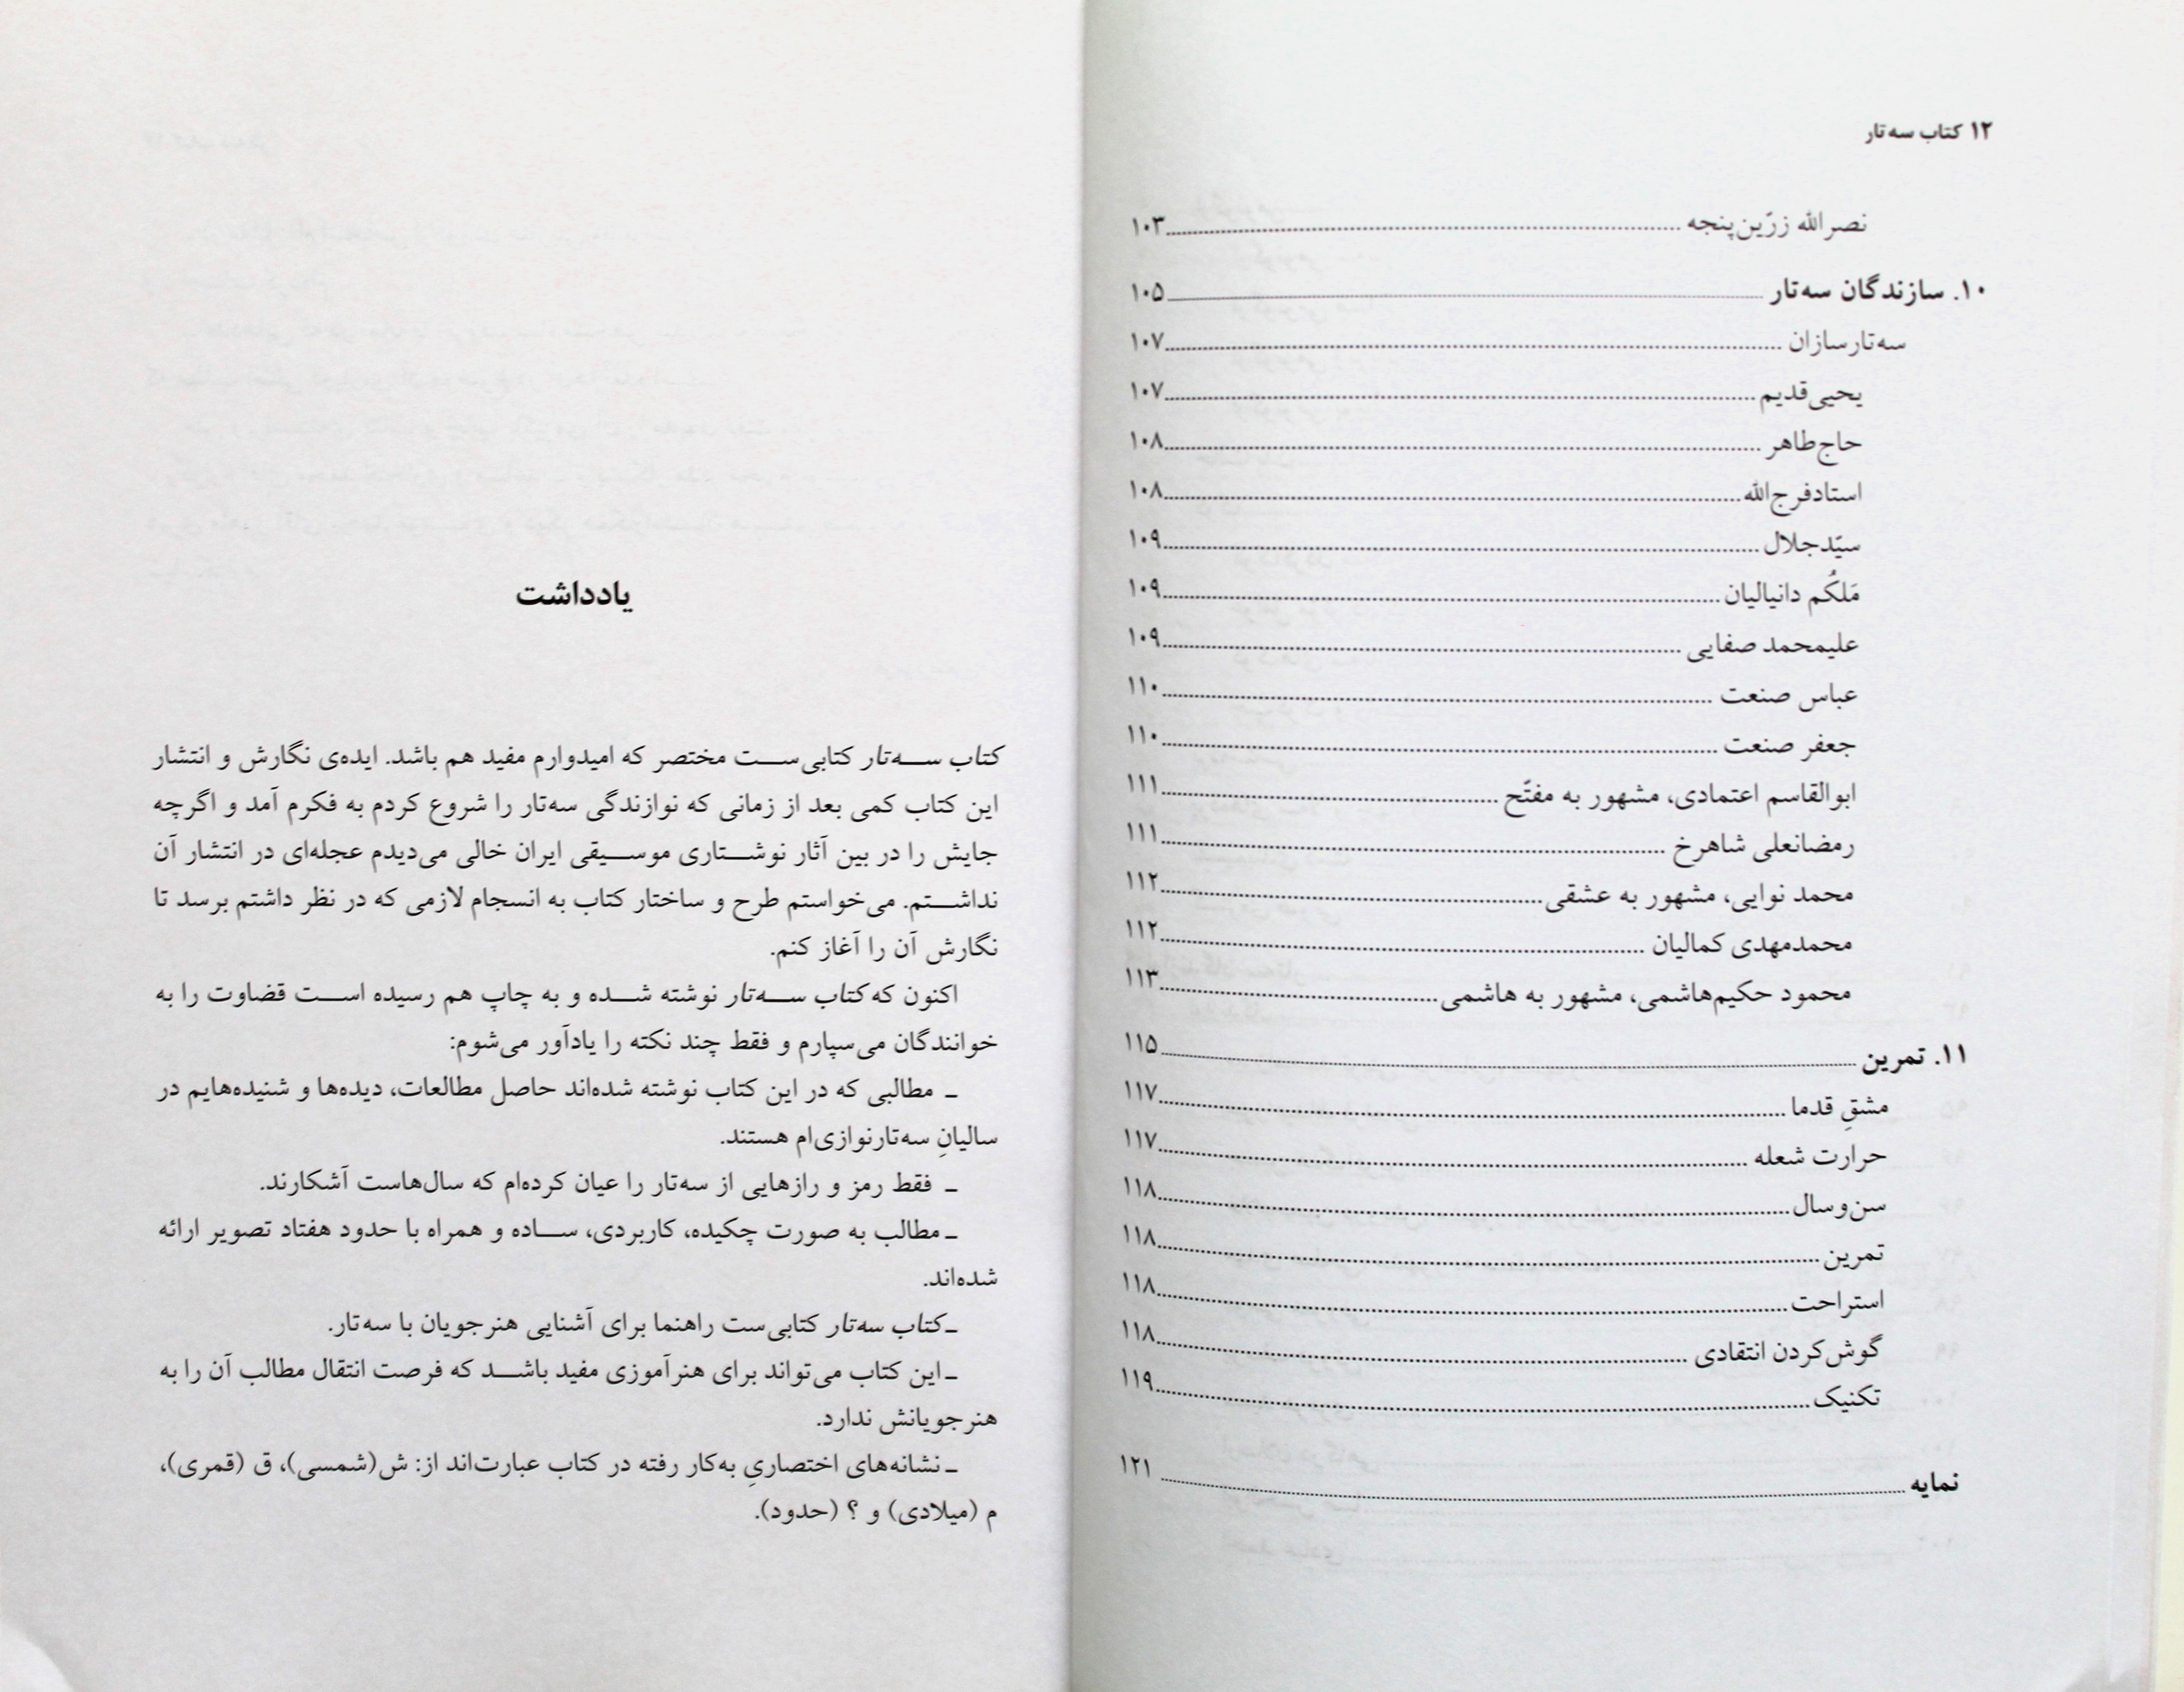 ۱۲ کتاب سه‌تار
نصرالله زرّین‌پنجه ........ ۱۰۳
۱۰. سازندگان سه‌تار ........ ۱۰۵
سه‌تارسازان ........ ۱۰۷
یحیی‌قدیم ........ ۱۰۷
حاج‌طاهر ........ ۱۰۸
استادفرج‌الله ........ ۱۰۸
سیّدجلال ........ ۱۰۹
مَلکُم دانیالیان ........ ۱۰۹
علیمحمد صفایی ........ ۱۰۹
عباس صنعت ........ ۱۱۰
جعفر صنعت ........ ۱۱۰
ابوالقاسم اعتمادی، مشهور به مفتّح ........ ۱۱۱
رمضانعلی شاهرخ ........ ۱۱۱
محمد نوایی، مشهور به عشقی ........ ۱۱۲
محمدمهدی کمالیان ........ ۱۱۲
محمود حکیم‌هاشمی، مشهور به هاشمی ........ ۱۱۳
۱۱. تمرین ........ ۱۱۵
مشقِ قدما ........ ۱۱۷
حرارت شعله ........ ۱۱۷
سن‌وسال ........ ۱۱۸
تمرین ........ ۱۱۸
استراحت ........ ۱۱۸
گوش‌کردن انتقادی ........ ۱۱۸
تکنیک ........ ۱۱۹
نمایه ........ ۱۲۱
یادداشت
کتاب سه‌تار کتابی‌ست مختصر که امیدوارم مفید هم باشد. ایده‌ی نگارش و انتشار
این کتاب کمی بعد از زمانی که نوازندگی سه‌تار را شروع کردم به فکرم آمد و اگرچه
جایش را در بین آثار نوشتاری موسیقی ایران خالی می‌دیدم عجله‌ای در انتشار آن
نداشتم. می‌خواستم طرح و ساختار کتاب به انسجام لازمی که در نظر داشتم برسد تا
نگارش آن را آغاز کنم.
اکنون که کتاب سه‌تار نوشته شده و به چاپ هم رسیده است قضاوت را به
خوانندگان می‌سپارم و فقط چند نکته را یادآور می‌شوم:
ـ مطالبی که در این کتاب نوشته شده‌اند حاصل مطالعات، دیده‌ها و شنیده‌هایم در
سالیانِ سه‌تارنوازی‌ام هستند.
ـ فقط رمز و رازهایی از سه‌تار را عیان کرده‌ام که سال‌هاست آشکارند.
ـ مطالب به صورت چکیده، کاربردی، ساده و همراه با حدود هفتاد تصویر ارائه
شده‌اند.
ـ کتاب سه‌تار کتابی‌ست راهنما برای آشنایی هنرجویان با سه‌تار.
ـ این کتاب می‌تواند برای هنرآموزی مفید باشد که فرصت انتقال مطالب آن را به
هنرجویانش ندارد.
ـ نشانه‌های اختصاریِ به‌کار رفته در کتاب عبارت‌اند از: ش (شمسی)، ق (قمری)،
م (میلادی) و ؟ (حدود).